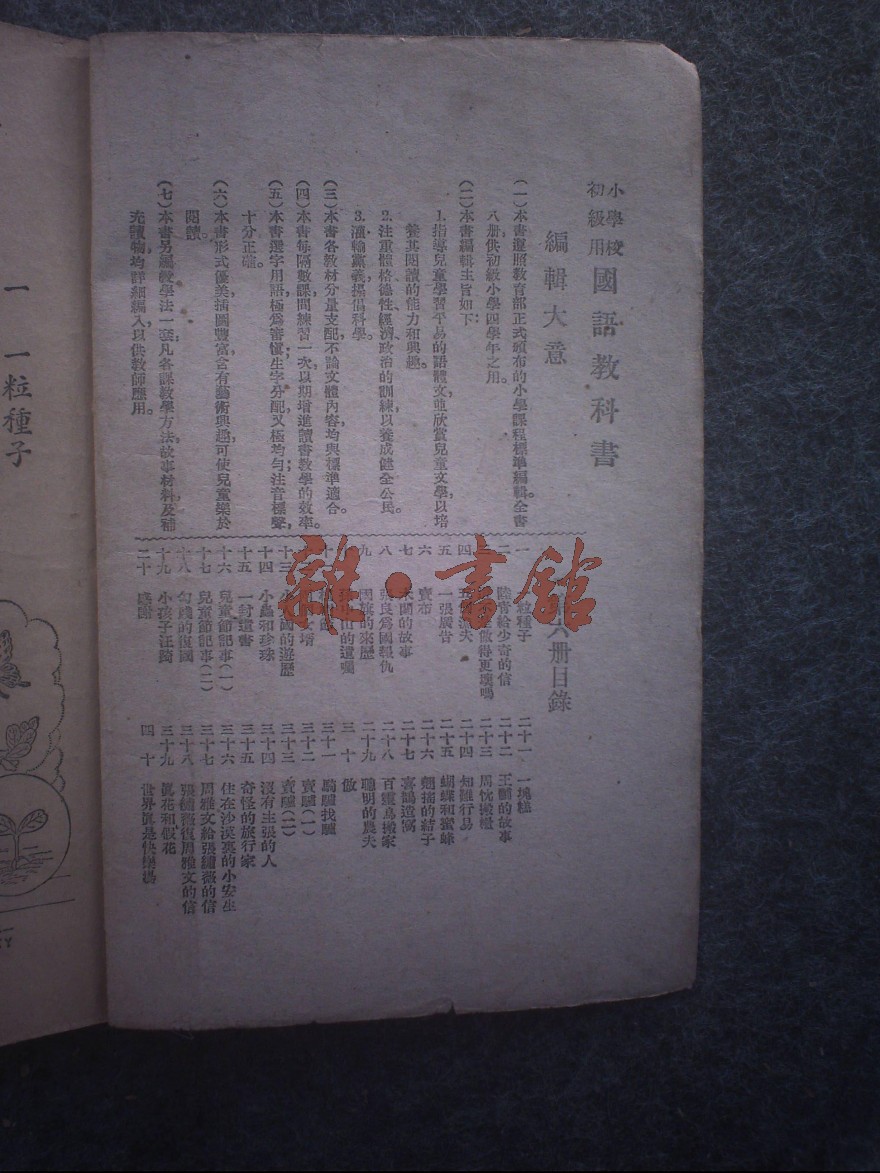 小學校
初級用
國語教科書
編輯大意
(一)本書遵照教育部正式頒布的小學課程標準編輯。全書
八册,供初級小學四學年之用。
(二)本書編輯主旨如下:
1.指導兒童學習平易的語體文,並欣賞兒童文學,以培
養其閱讀的能力和興趣。
2.注重體格、德性、經濟、政治的訓練,以養成健全公民。
3.灌輸黨義,提倡科學。
(三)本書各教材分量支配,不論文體內容,均與標準適合。
(四)本書每隔數課,間練習一次,以期增進讀書教學的效率。
(五)本書選字用語,極爲審愼;生字分配,又極均勻;注音標聲,
十分正確。
(六)本書形式優美,插圖豐富,含有藝術興趣,可使兒童樂於
閱讀。
(七)本書另編教學法一套,凡各課教學方法、故事材料及補
充讀物,均詳細編入,以供教師應用。
六册目錄
一 一粒種子
二 給少奇的信
做得更壞嗎
四
五 一張廣告
六 賣布
七 的故事
八 張良爲國報仇
九 國旗的來歷
的遺囑
十三 的遊歷
十四 小蟲和珍珠
十五 一封遺書
十六 兒童節記事(一)
十七 兒童節記事(二)
十八 勾踐的復國
十九 小孩子汪踦
二十
二十一 一塊糕
二十二 王 的故事
二十三 周 搬
二十四 知難行易
二十五 蝴蝶和蜜蜂
二十六 翅 的結子
二十七 喜鵲造窩
二十八 百靈鳥搬家
二十九 聰明的農夫
三十
三十一 騎驢找驢
三十二 賣驢(一)
三十三 賣驢(二)
三十四 沒有主張的人
三十五 奇怪的旅行家
三十六 住在沙漠裏的小安生
三十七 周雅文給張繡薇的信
三十八 張繡薇復周雅文的信
三十九 眞花和假花
四十 世界眞是快樂場
一 一粒種子
雜·書館